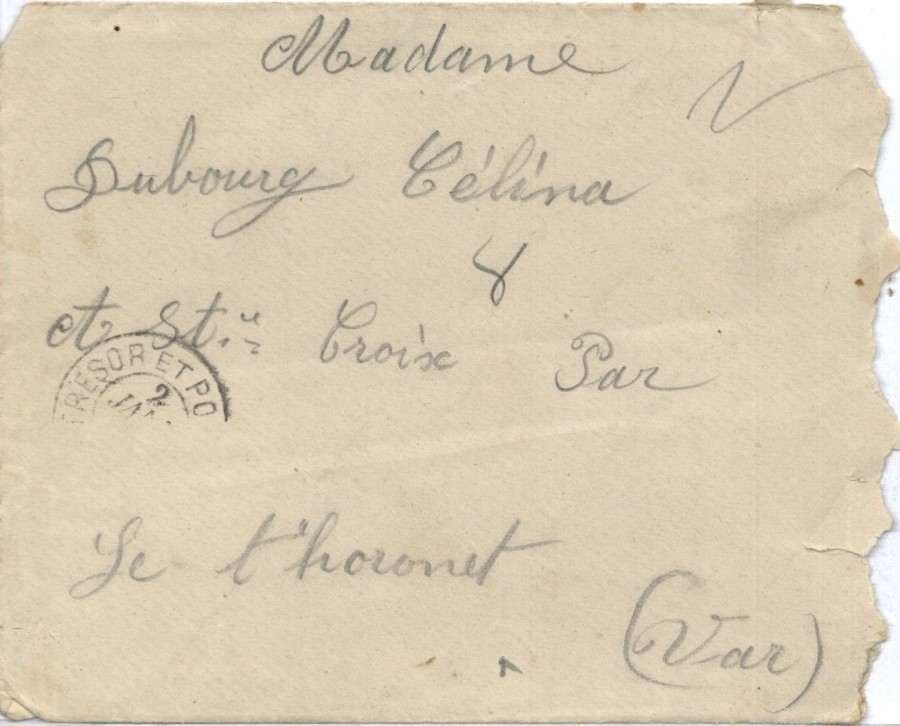 Madame
Dubourg Célina
8
A St.e Croix Par
TRESOR ET PO
2
JAN
Le t'horonet
(Var)